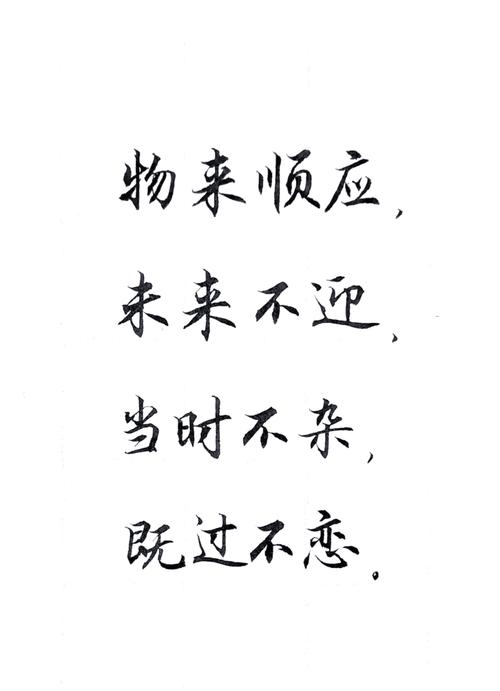 物来顺应，
未来不迎，
当时不杂，
既过不恋。